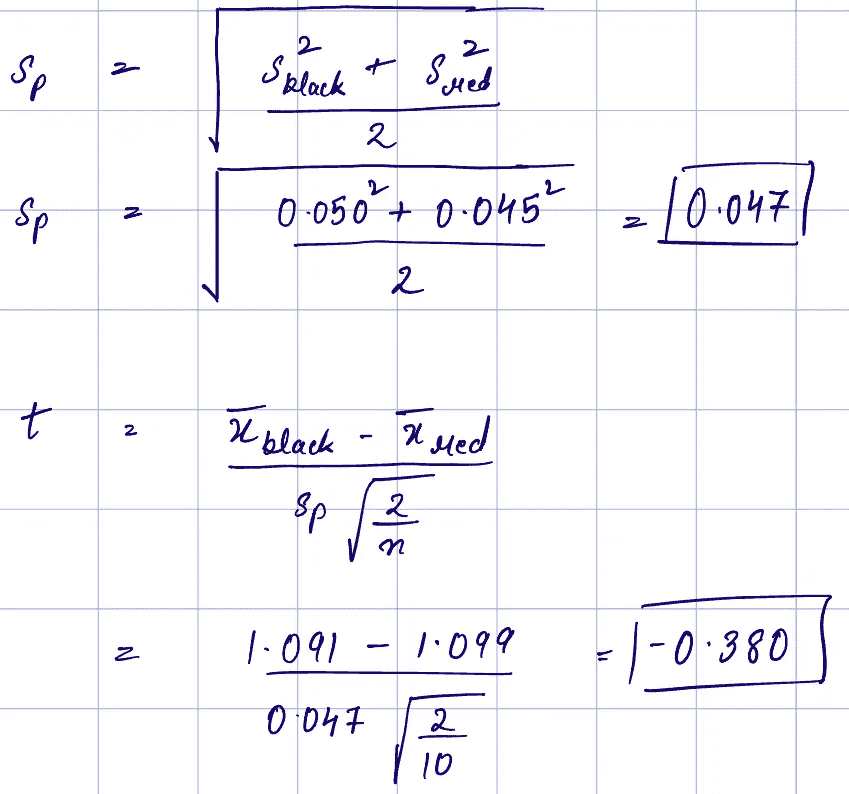 s_p = √((s²_black + s²_red) / 2)
s_p = √((0.050² + 0.045²) / 2) = 0.047
t = (x̄_black - x̄_red) / (s_p √(2/n))
= (1.091 - 1.099) / (0.047 √(2/10)) = -0.380